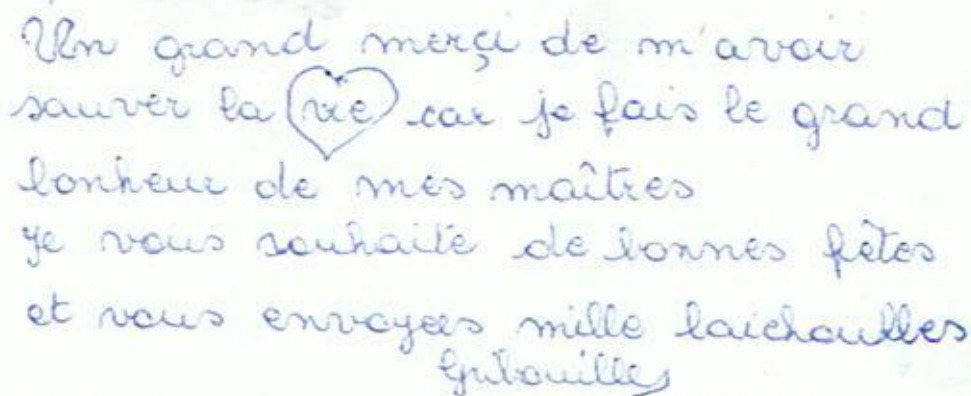 Un grand merçi de m'avoir
sauver la vie car je fais le grand
bonheur de mes maîtres
Je vous souhaite de bonnes fêtes
et vous envoyees mille laichoulles
Gribouilles